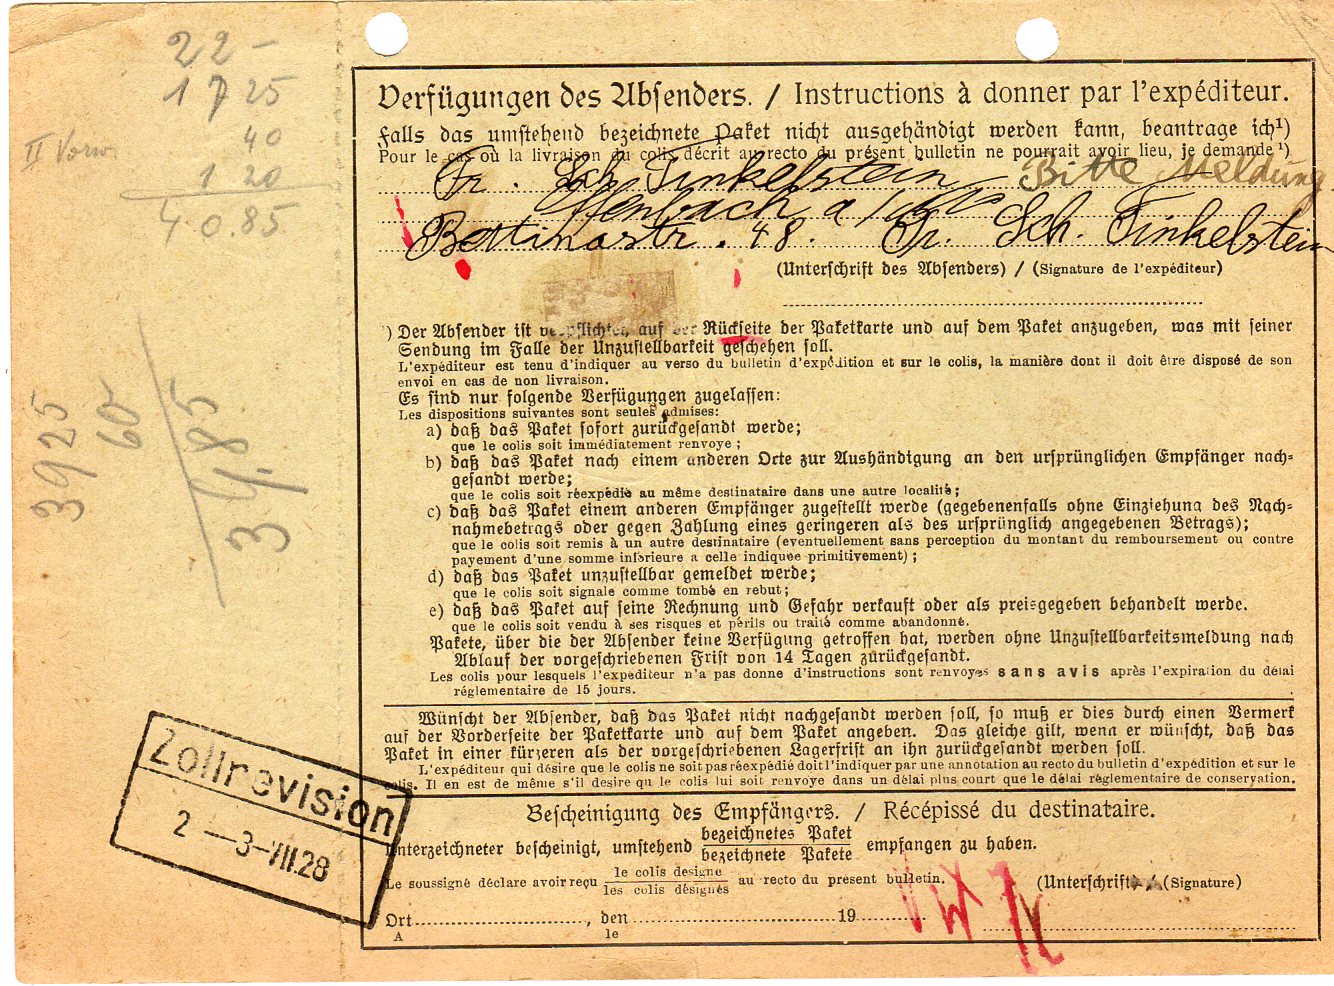 22 –
17 25
40
1 20
40.85
II Vorw.
3925
60
Verfügungen des Absenders. / Instructions à donner par l'expéditeur.
Falls das umstehend bezeichnete Paket nicht ausgehändigt werden kann, beantrage ich¹)
Pour le cas où la livraison du colis décrit au recto du présent bulletin ne pourrait avoir lieu, je demande¹)
Fr. Sch. Finkelstein Bitte Meldung
Offenbach a/
Bettinastr. 48. Fr. Sch. Finkelstein
(Unterschrift des Absenders) / (Signature de l'expéditeur)
¹) Der Absender ist verpflichtet, auf der Rückseite der Paketkarte und auf dem Paket anzugeben, was mit seiner
Sendung im Falle der Unzustellbarkeit geschehen soll.
L'expéditeur est tenu d'indiquer au verso du bulletin d'expédition et sur le colis, la manière dont il doit être disposé de son
envoi en cas de non livraison.
Es sind nur folgende Verfügungen zugelassen:
Les dispositions suivantes sont seules admises:
a) daß das Paket sofort zurückgesandt werde;
que le colis soit immédiatement renvoye ;
b) daß das Paket nach einem anderen Orte zur Aushändigung an den ursprünglichen Empfänger nach-
gesandt werde;
que le colis soit réexpédié au même destinataire dans une autre localité;
c) daß das Paket einem anderen Empfänger zugestellt werde (gegebenenfalls ohne Einziehung des Nach-
nahmebetrags oder gegen Zahlung eines geringeren als des ursprünglich angegebenen Betrags);
que le colis soit remis à un autre destinataire (eventuellement sans perception du montant du remboursement ou contre
payement d'une somme inférieure a celle indiquée primitivement) ;
d) daß das Paket unzustellbar gemeldet werde;
que le colis soit signale comme tombé en rebut;
e) daß das Paket auf seine Rechnung und Gefahr verkauft oder als preisgegeben behandelt werde.
que le colis soit vendu à ses risques et périls ou traité comme abandonné.
Pakete, über die der Absender keine Verfügung getroffen hat, werden ohne Unzustellbarkeitsmeldung nach
Ablauf der vorgeschriebenen Frist von 14 Tagen zurückgesandt.
Les colis pour lesquels l'expediteur n'a pas donne d'instructions sont renvoyes sans avis après l'expiration du délai
réglementaire de 15 jours.
Wünscht der Absender, daß das Paket nicht nachgesandt werden soll, so muß er dies durch einen Vermerk
auf der Vorderseite der Paketkarte und auf dem Paket angeben. Das gleiche gilt, wenn er wünscht, daß das
Paket in einer kürzeren als der vorgeschriebenen Lagerfrist an ihn zurückgesandt werden soll.
L'expéditeur qui désire que le colis ne soit pas réexpédié doit l'indiquer par une annotation au recto du bulletin d'expédition et sur le
colis. Il en est de même s'il desire qu le colis lui soit renvoye dans un délai plus court que le délai réglementaire de conservation.
Zollrevision
2 — 3-VIII.28
Bescheinigung des Empfängers. / Récépissé du destinataire.
Unterzeichneter bescheinigt, umstehend bezeichnetes Paket
bezeichnete Pakete empfangen zu haben.
Le soussigné déclare avoir reçu le colis designe
les colis désignés au recto du présent bulletin.
(Unterschrift) / (Signature)
Ort , den 19
A le